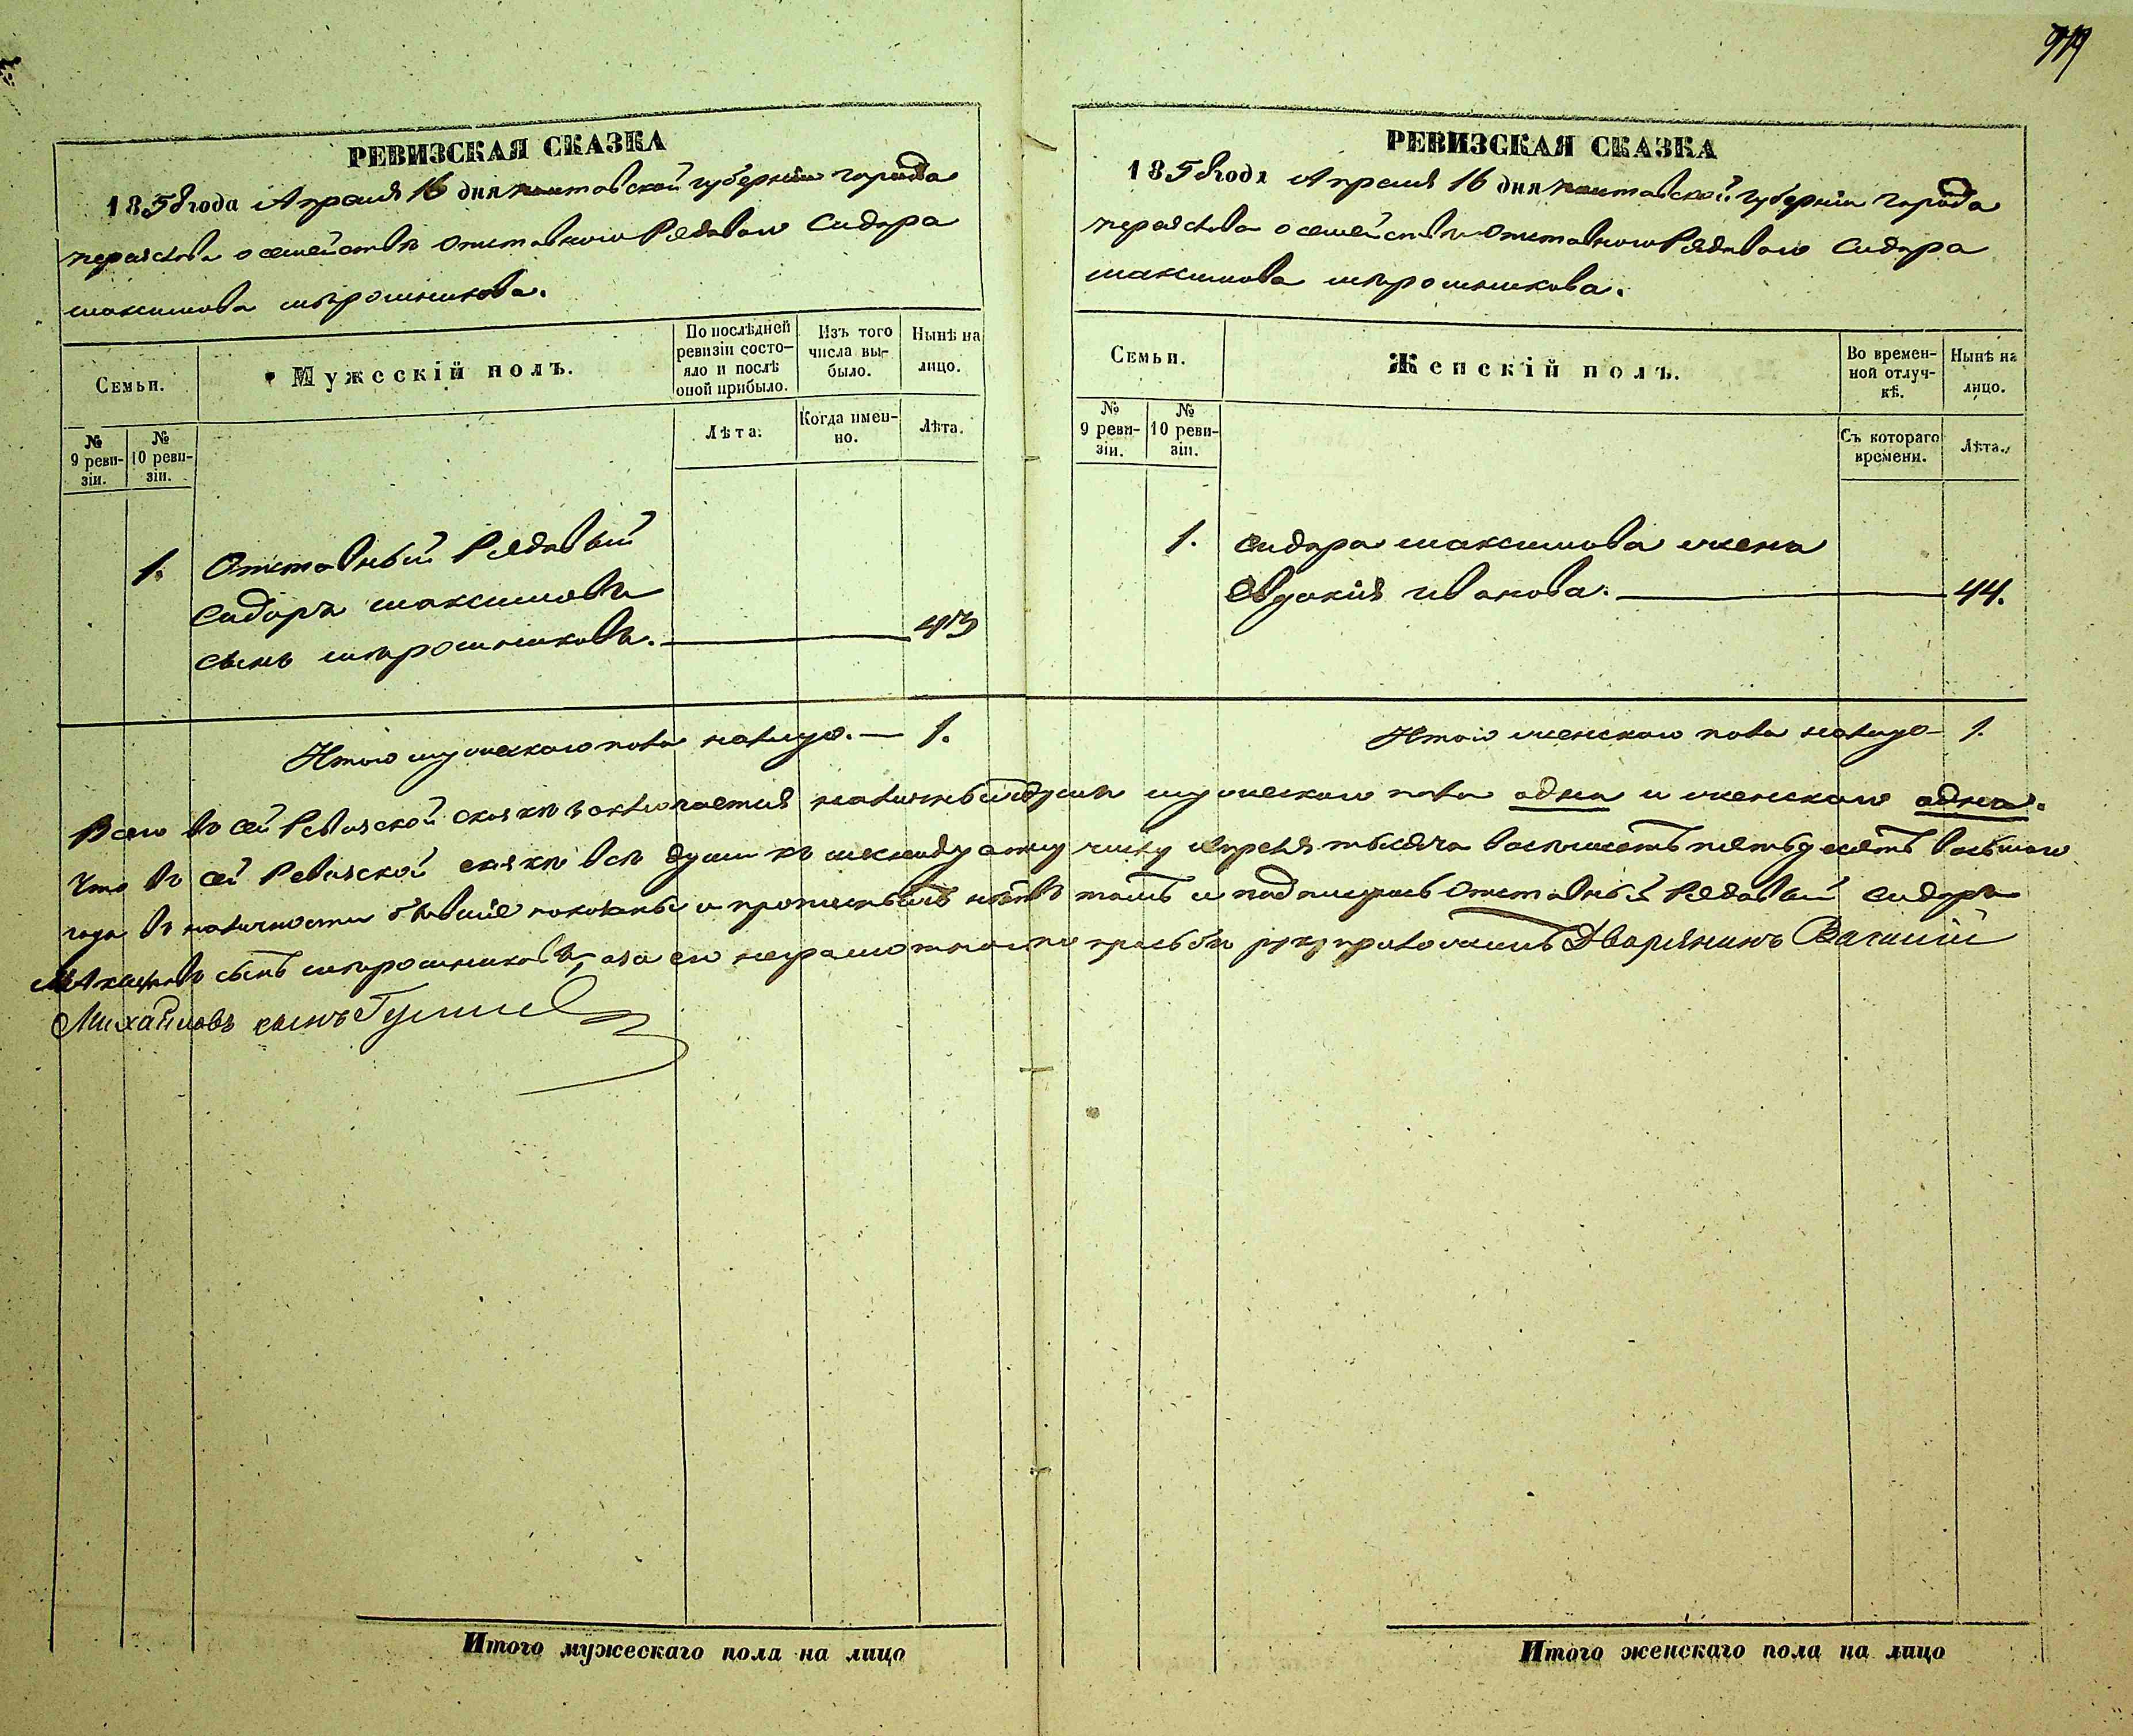 РЕВИЗСКАЯ СКАЗКА
1858 года Апреля 16 дня Полтавской губерніи города
переяслова о семействѣ Отставного Рядового Сидора
максимова мирошникова.
Семьи.
Мужескій полъ.
По послѣдней ревизіи состояло и послѣ оной прибыло.
Изъ того числа выбыло.
Нынѣ на лицо.
№ 9 ревизіи.
№ 10 ревизіи.
Лѣта.
Когда именно.
Лѣта.
1. Отставный Рядовый
Сидоръ максимовъ
сынъ мирошниковъ.
Итого мужескаго пола налицо. — 1.
РЕВИЗСКАЯ СКАЗКА
1858 года Апреля 16 дня Полтавской губерніи города
переяслова о семействѣ Отставного Рядового Сидора
максимова мирошникова.
Семьи.
Женскій полъ.
Во временной отлучкѣ.
Нынѣ на лицо.
№ 9 ревизіи.
№ 10 ревизіи.
Съ котораго времени.
Лѣта.
1. Сидора максимова жена
Евдокія иванова. — 44.
Итого женскаго пола налицо — 1.
Всего въ сей Ревизской сказкѣ заключается наличныхъ душъ мужескаго пола одна и женскаго одна.
Что въ сей Ревизской сказкѣ всѣ души къ числу Апреля тысяча восемьсотъ пятьдесятъ восьмого
года въ наличности бывшіе показаны и прописныхъ нѣтъ въ томъ и подписуюсь Отставный Рядовый Сидоръ
Максимовъ сынъ мирошниковъ, а за его неграмотностью просьбы руку приложилъ Дворянинъ Василій
Михайловъ сынъ
Итого мужескаго пола на лицо
Итого женскаго пола на лицо